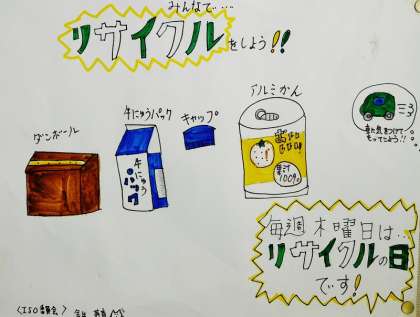 みんなで‥‥
リサイクルをしよう!!
アルミかん
牛にゅうパック
キャップ
ダンボール
牛にゅう
パック
果汁
100%
車に気をつけて
もってこよう!!
毎週 木曜日は‥
リサイクルの日
です!
〈ISO委員会〉